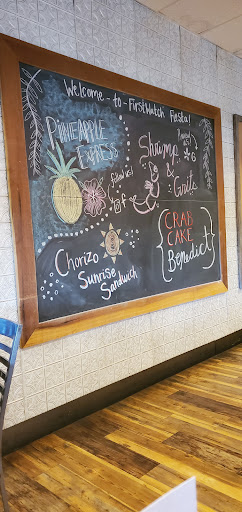 Welcome - to - FirstWatch Fiesta!
PINEAPPLE
EXPRESS
Shrimp
&
Grits
Chorizo
Sunrise
Sandwich
CRAB
CAKE
Benedict